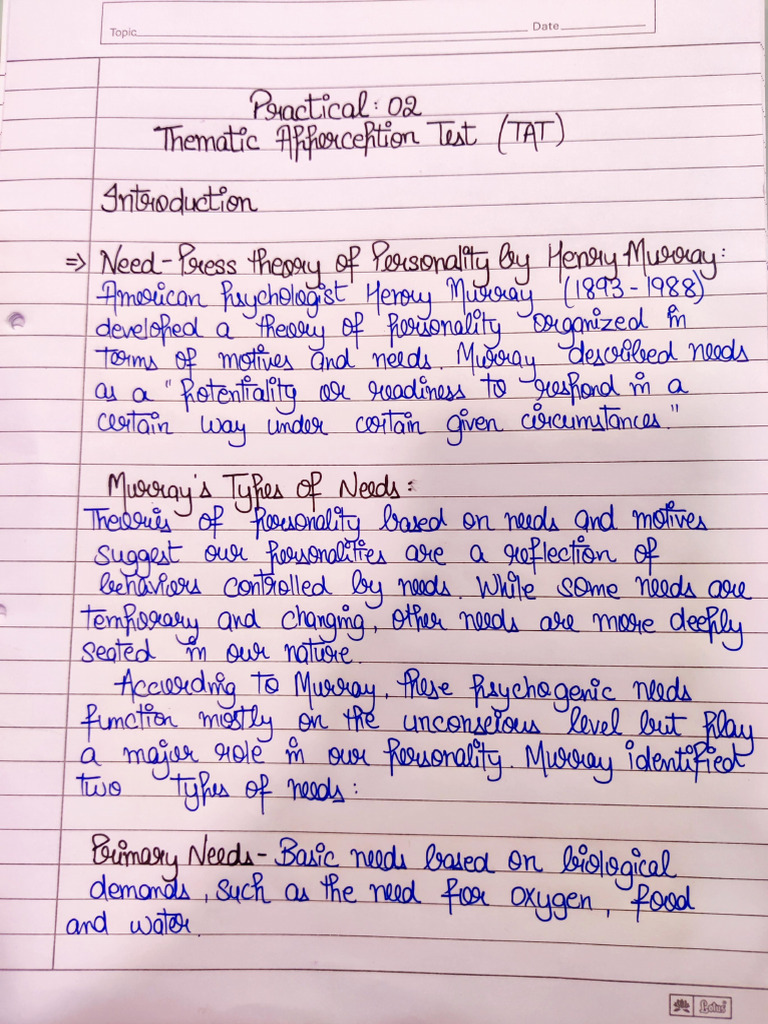 Topic
Date
Practical: 02
Thematic Apperception Test (TAT)
Introduction
⇒ Need-Press theory of Personality by Henry Murray:
American psychologist Henry Murray (1893-1988)
developed a theory of personality organized in
terms of motives and needs. Murray described needs
as a "potentiality or readiness to respond in a
certain way under certain given circumstances."
Murray's Types of Needs:
Theories of personality based on needs and motives
suggest our personalities are a reflection of
behaviors controlled by needs. While some needs are
temporary and changing, other needs are more deeply
seated in our nature.
According to Murray, these psychogenic needs
function mostly on the unconscious level but play
a major role in our personality. Murray identified
two types of needs:
Primary Needs- Basic needs based on biological
demands, such as the need for oxygen, food
and water.
Lotus